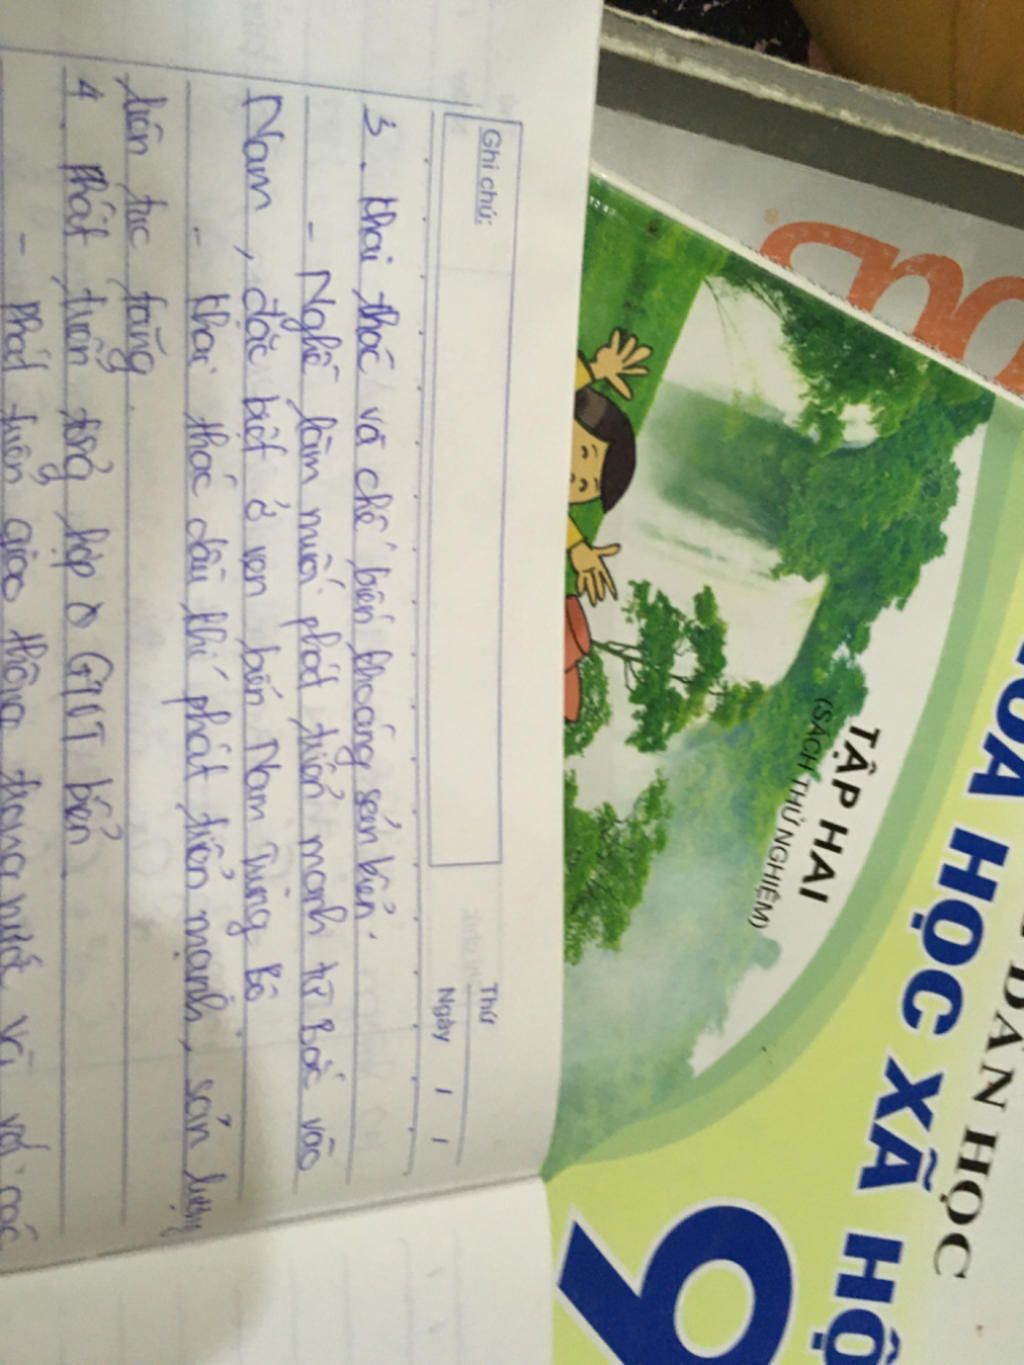 Ghi chú:
Thứ
Ngày / /
3. Khai thác và chế biến khoáng sản biển.
- Nghề làm muối phát triển mạnh từ Bắc vào
Nam, đặc biệt ở ven biển Nam Trung Bộ
- Khai thác dầu khí phát triển mạnh, sản lượng
liên tục tăng.
4. Phát triển tổng hợp GTVT biển
- phát triển giao thông trong nước và với các
DẪN HỌC
HOA HỌC XÃ HỘ
9
TẬP HAI
(SÁCH THỬ NGHIỆM)